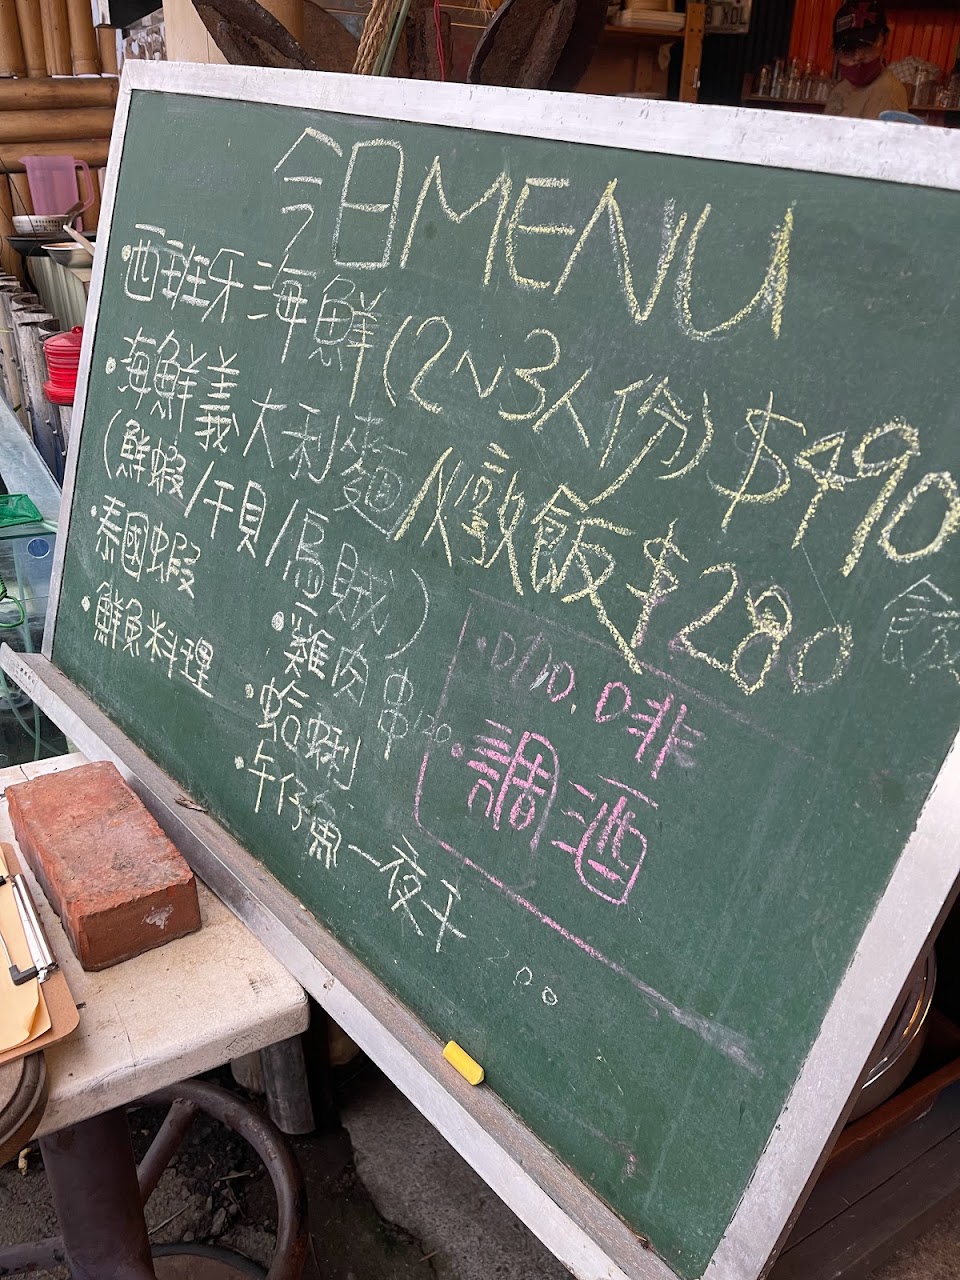 今日MENU
·西班牙海鮮(2~3人份)$490
·海鮮義大利麵/燉飯$280
(鮮蝦/干貝/烏賊)
·泰國蝦
·鮮魚料理
·雞肉串120
·蛤蜊
·午仔魚一夜干 200
啡
·調酒